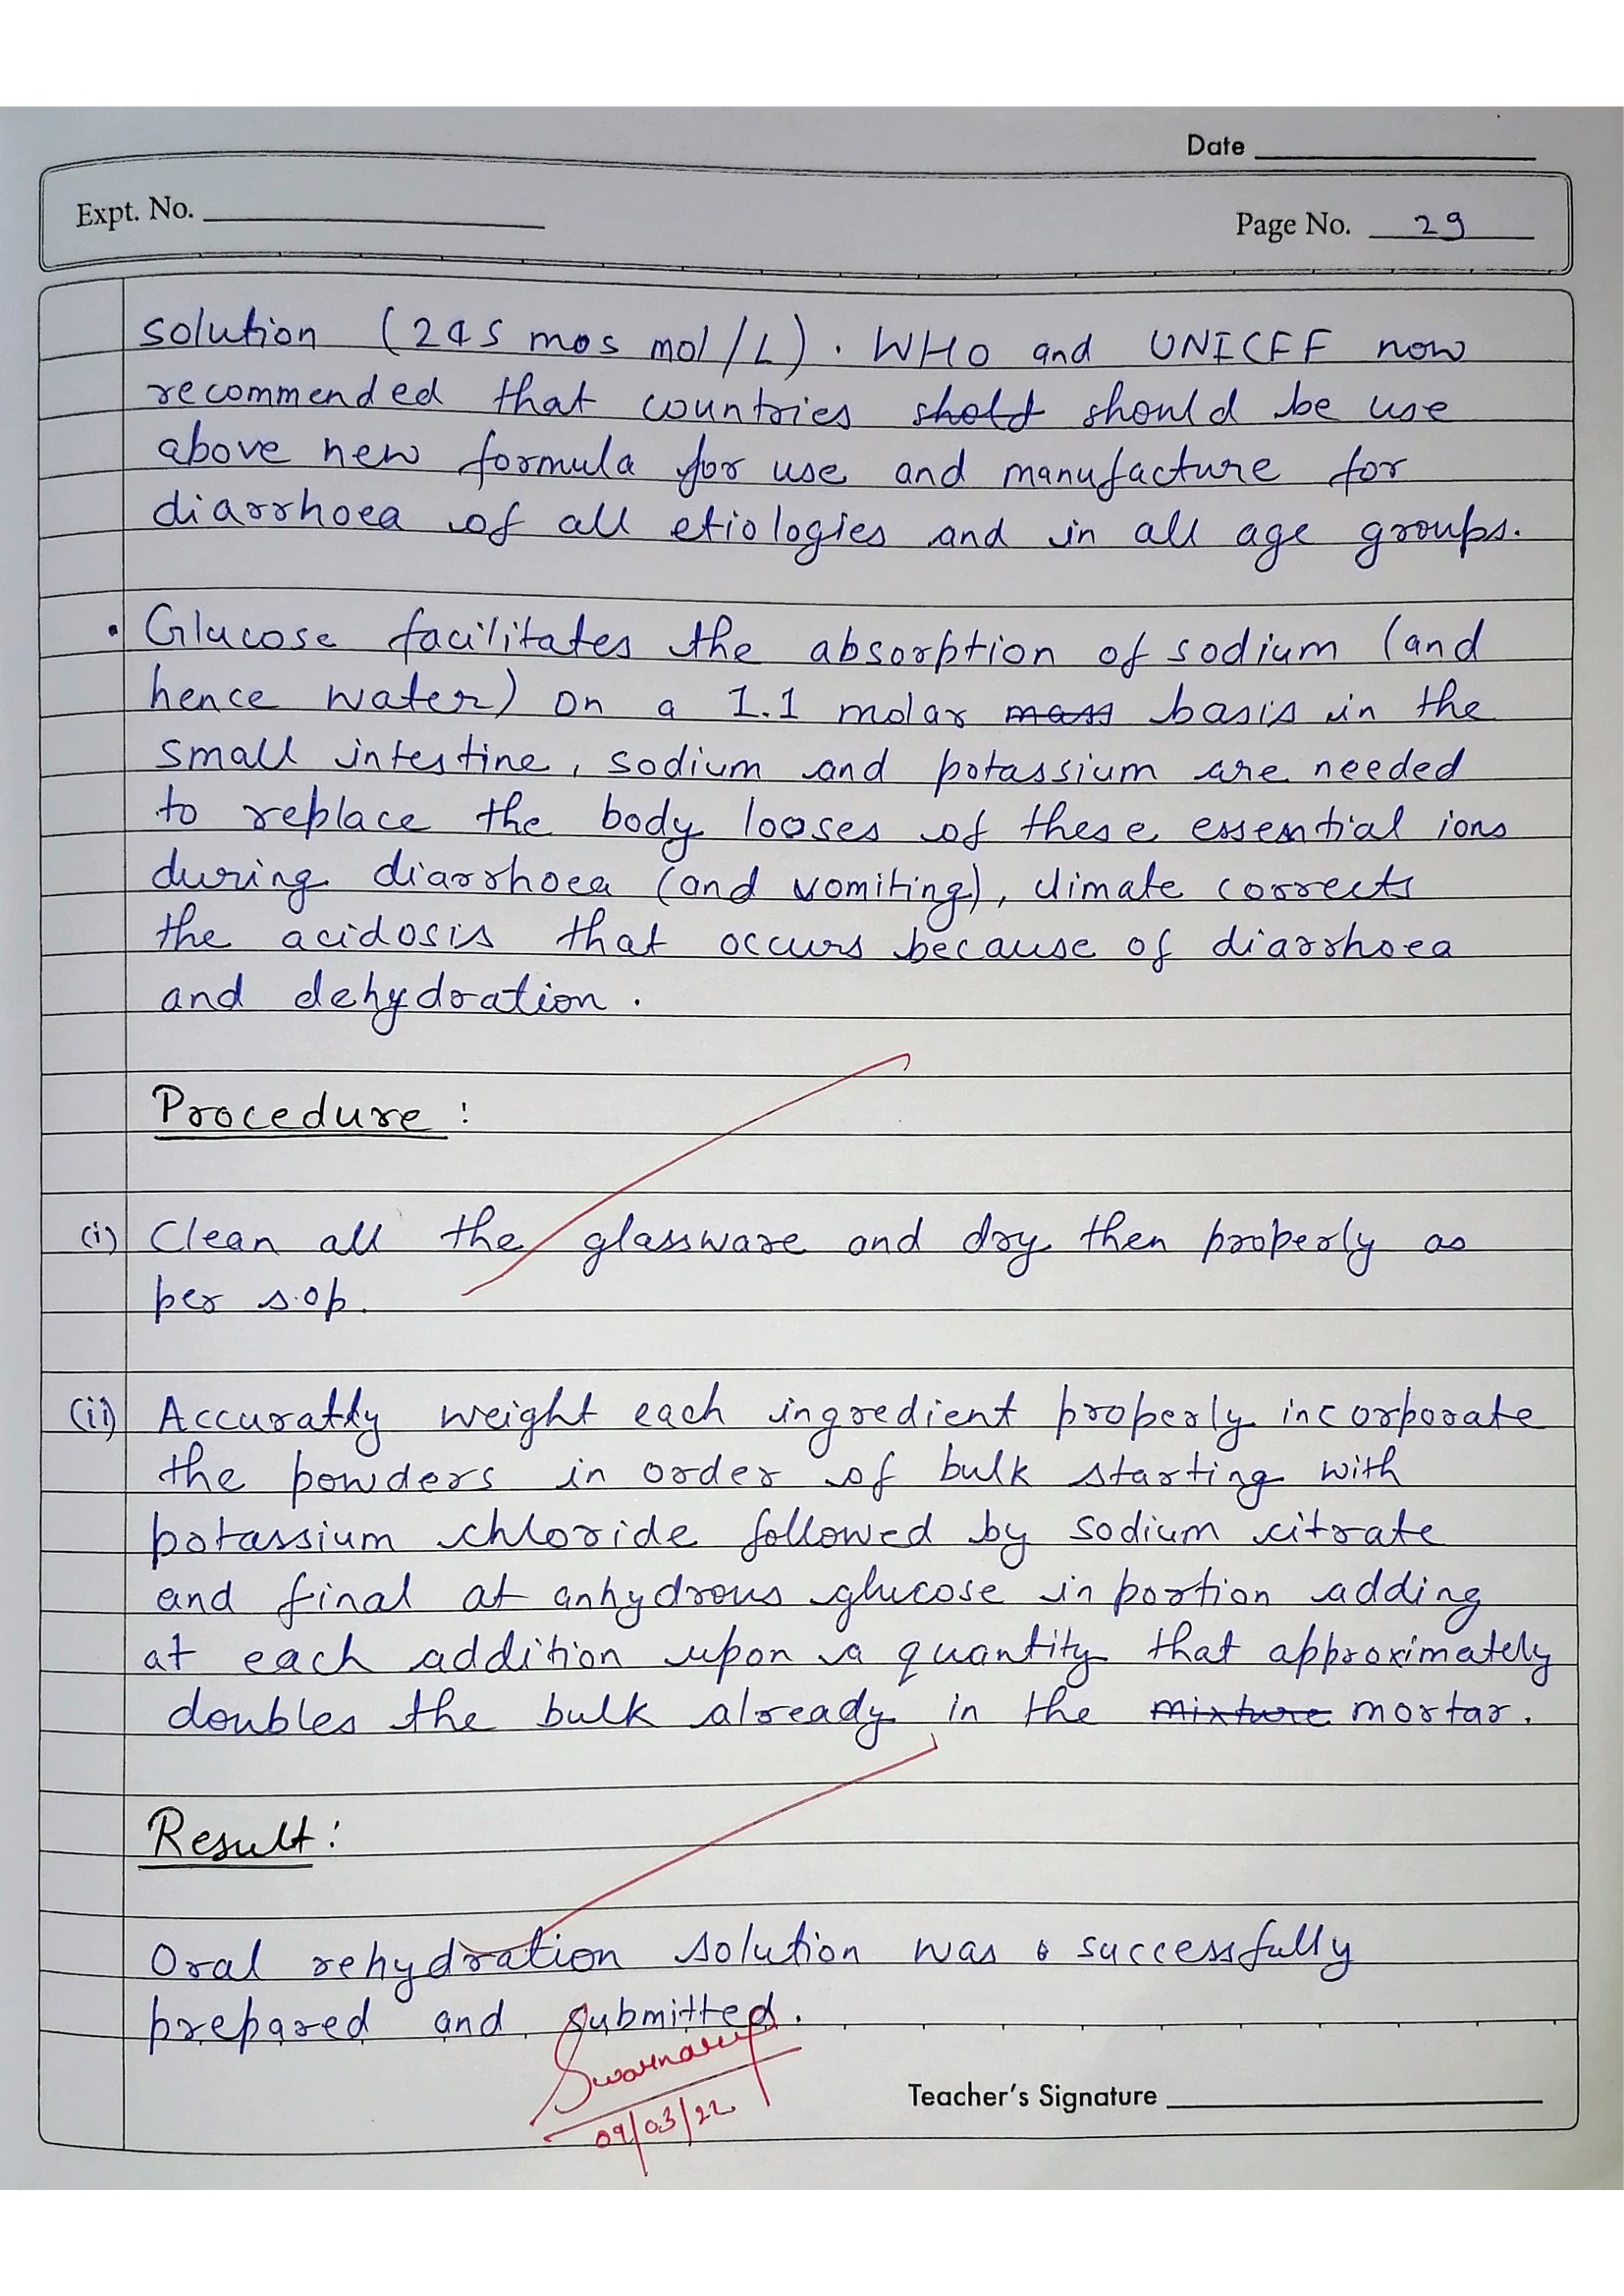 Date
Expt. No.
Page No. 29
solution (245 mos mol/L). WHO and UNICEF now
recommended that countries ~~shold~~ should be use
above new formula for use and manufacture for
diarrhoea of all etiologies and in all age groups.
• Glucose facilitates the absorption of sodium (and
hence water) on a 1.1 molar ~~mass~~ basis in the
small intestine, sodium and potassium are needed
to replace the body looses of these essential ions
during diarrhoea (and vomiting), climate corrects
the acidosis that occurs because of diarrhoea
and dehydration.
Procedure :
(i) Clean all the glassware and dry then properly as
per s.op.
(ii) Accuratly weight each ingredient properly incorporate
the powders in order of bulk starting with
potassium chloride followed by sodium citrate
and final at anhydrous glucose in portion adding
at each addition upon a quantity that approximately
doubles the bulk already in the ~~mixture~~ mortar.
Result :
Oral rehydration solution was successfully
prepared and submitted.
Swarnarup
09/03/22
Teacher's Signature